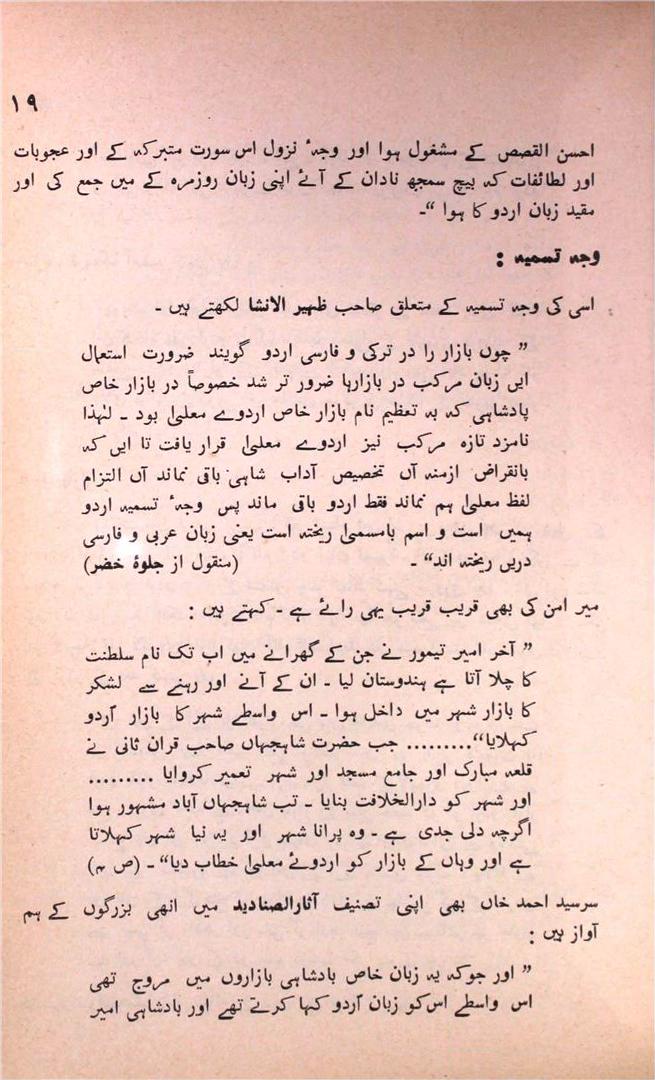 ۱۹
احسن القصص کے مشغول ہوا اور وجۂ نزول اس سورت متبرکہ کے اور عجوبات
اور لطائفات کہ بیچ سمجھ نادان کے آئے اپنی زبان روزمرہ کے میں جمع کی اور
مقید زبان اردو کا ہوا “۔
وجہ تسمیہ :
اسی کی وجہ تسمیہ کے متعلق صاحب ظہیر الانشا لکھتے ہیں ۔
” چوں بازار را در ترکی و فارسی اردو گویند ضرورت استعمال
ایں زبان مرکب در بازارہا ضرور تر شد خصوصاً در بازار خاص
پادشاہی کہ بہ تعظیم نام بازار خاص اردوے معلیٰ بود ۔ لہٰذا
نامزد تازہ مرکب نیز اردوے معلیٰ قرار یافت تا ایں کہ
بانقراض ازمنہ آں تخصیص آداب شاہی باقی نماند آں التزام
لفظ معلیٰ ہم نماند فقط اردو باقی ماند پس وجۂ تسمیہ اردو
ہمیں است و اسم بامسمیٰ ریختہ است یعنی زبان عربی و فارسی
دریں ریختہ اند“ ۔ (منقول از جلوۂ خضر)
میر امن کی بھی قریب قریب یہی رائے ہے ۔ کہتے ہیں :
” آخر امیر تیمور نے جن کے گھرانے میں اب تک نام سلطنت
کا چلا آتا ہے ہندوستان لیا ۔ ان کے آنے اور رہنے سے لشکر
کا بازار شہر میں داخل ہوا ۔ اس واسطے شہر کا بازار اُردو
کہلایا“......... جب حضرت شاہجہاں صاحب قران ثانی نے
قلعہ مبارک اور جامع مسجد اور شہر تعمیر کروایا .........
اور شہر کو دارالخلافت بنایا ۔ تب شاہجہاں آباد مشہور ہوا
اگرچہ دلی جدی ہے ۔ وہ پرانا شہر اور یہ نیا شہر کہلاتا
ہے اور وہاں کے بازار کو اردوئے معلیٰ خطاب دیا“ ۔ (ص ۴)
سرسید احمد خاں بھی اپنی تصنیف آثارالصنادید میں انھی بزرگوں کے ہم
آواز ہیں :
” اور جوکہ یہ زبان خاص بادشاہی بازاروں میں مروج تھی
اس واسطے اس کو زبان اُردو کہا کرتے تھے اور بادشاہی امیر